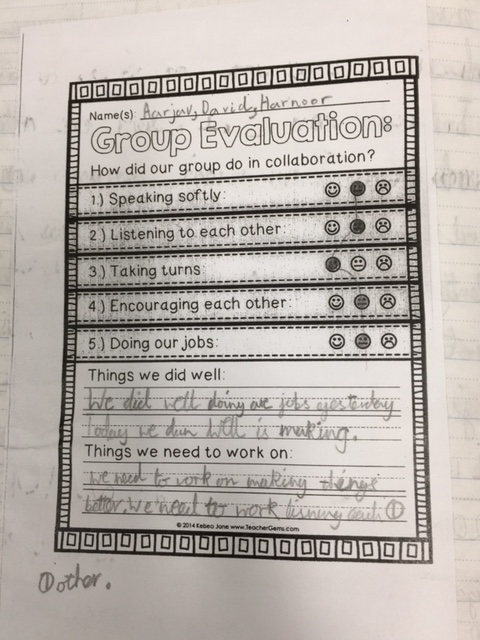 Name(s): Aarjav, David, Harnoor
Group Evaluation:
How did our group do in collaboration?
1.) Speaking softly:
2.) Listening to each other:
3.) Taking turns:
4.) Encouraging each other:
5.) Doing our jobs:
Things we did well:
We did well doing are jobs yesterday
Today we dun well is making.
Things we need to work on:
we need to work on making things
better. We need to work lisning each ①
© 2014 Kelsea Jane www.TeacherGems.com
①other.